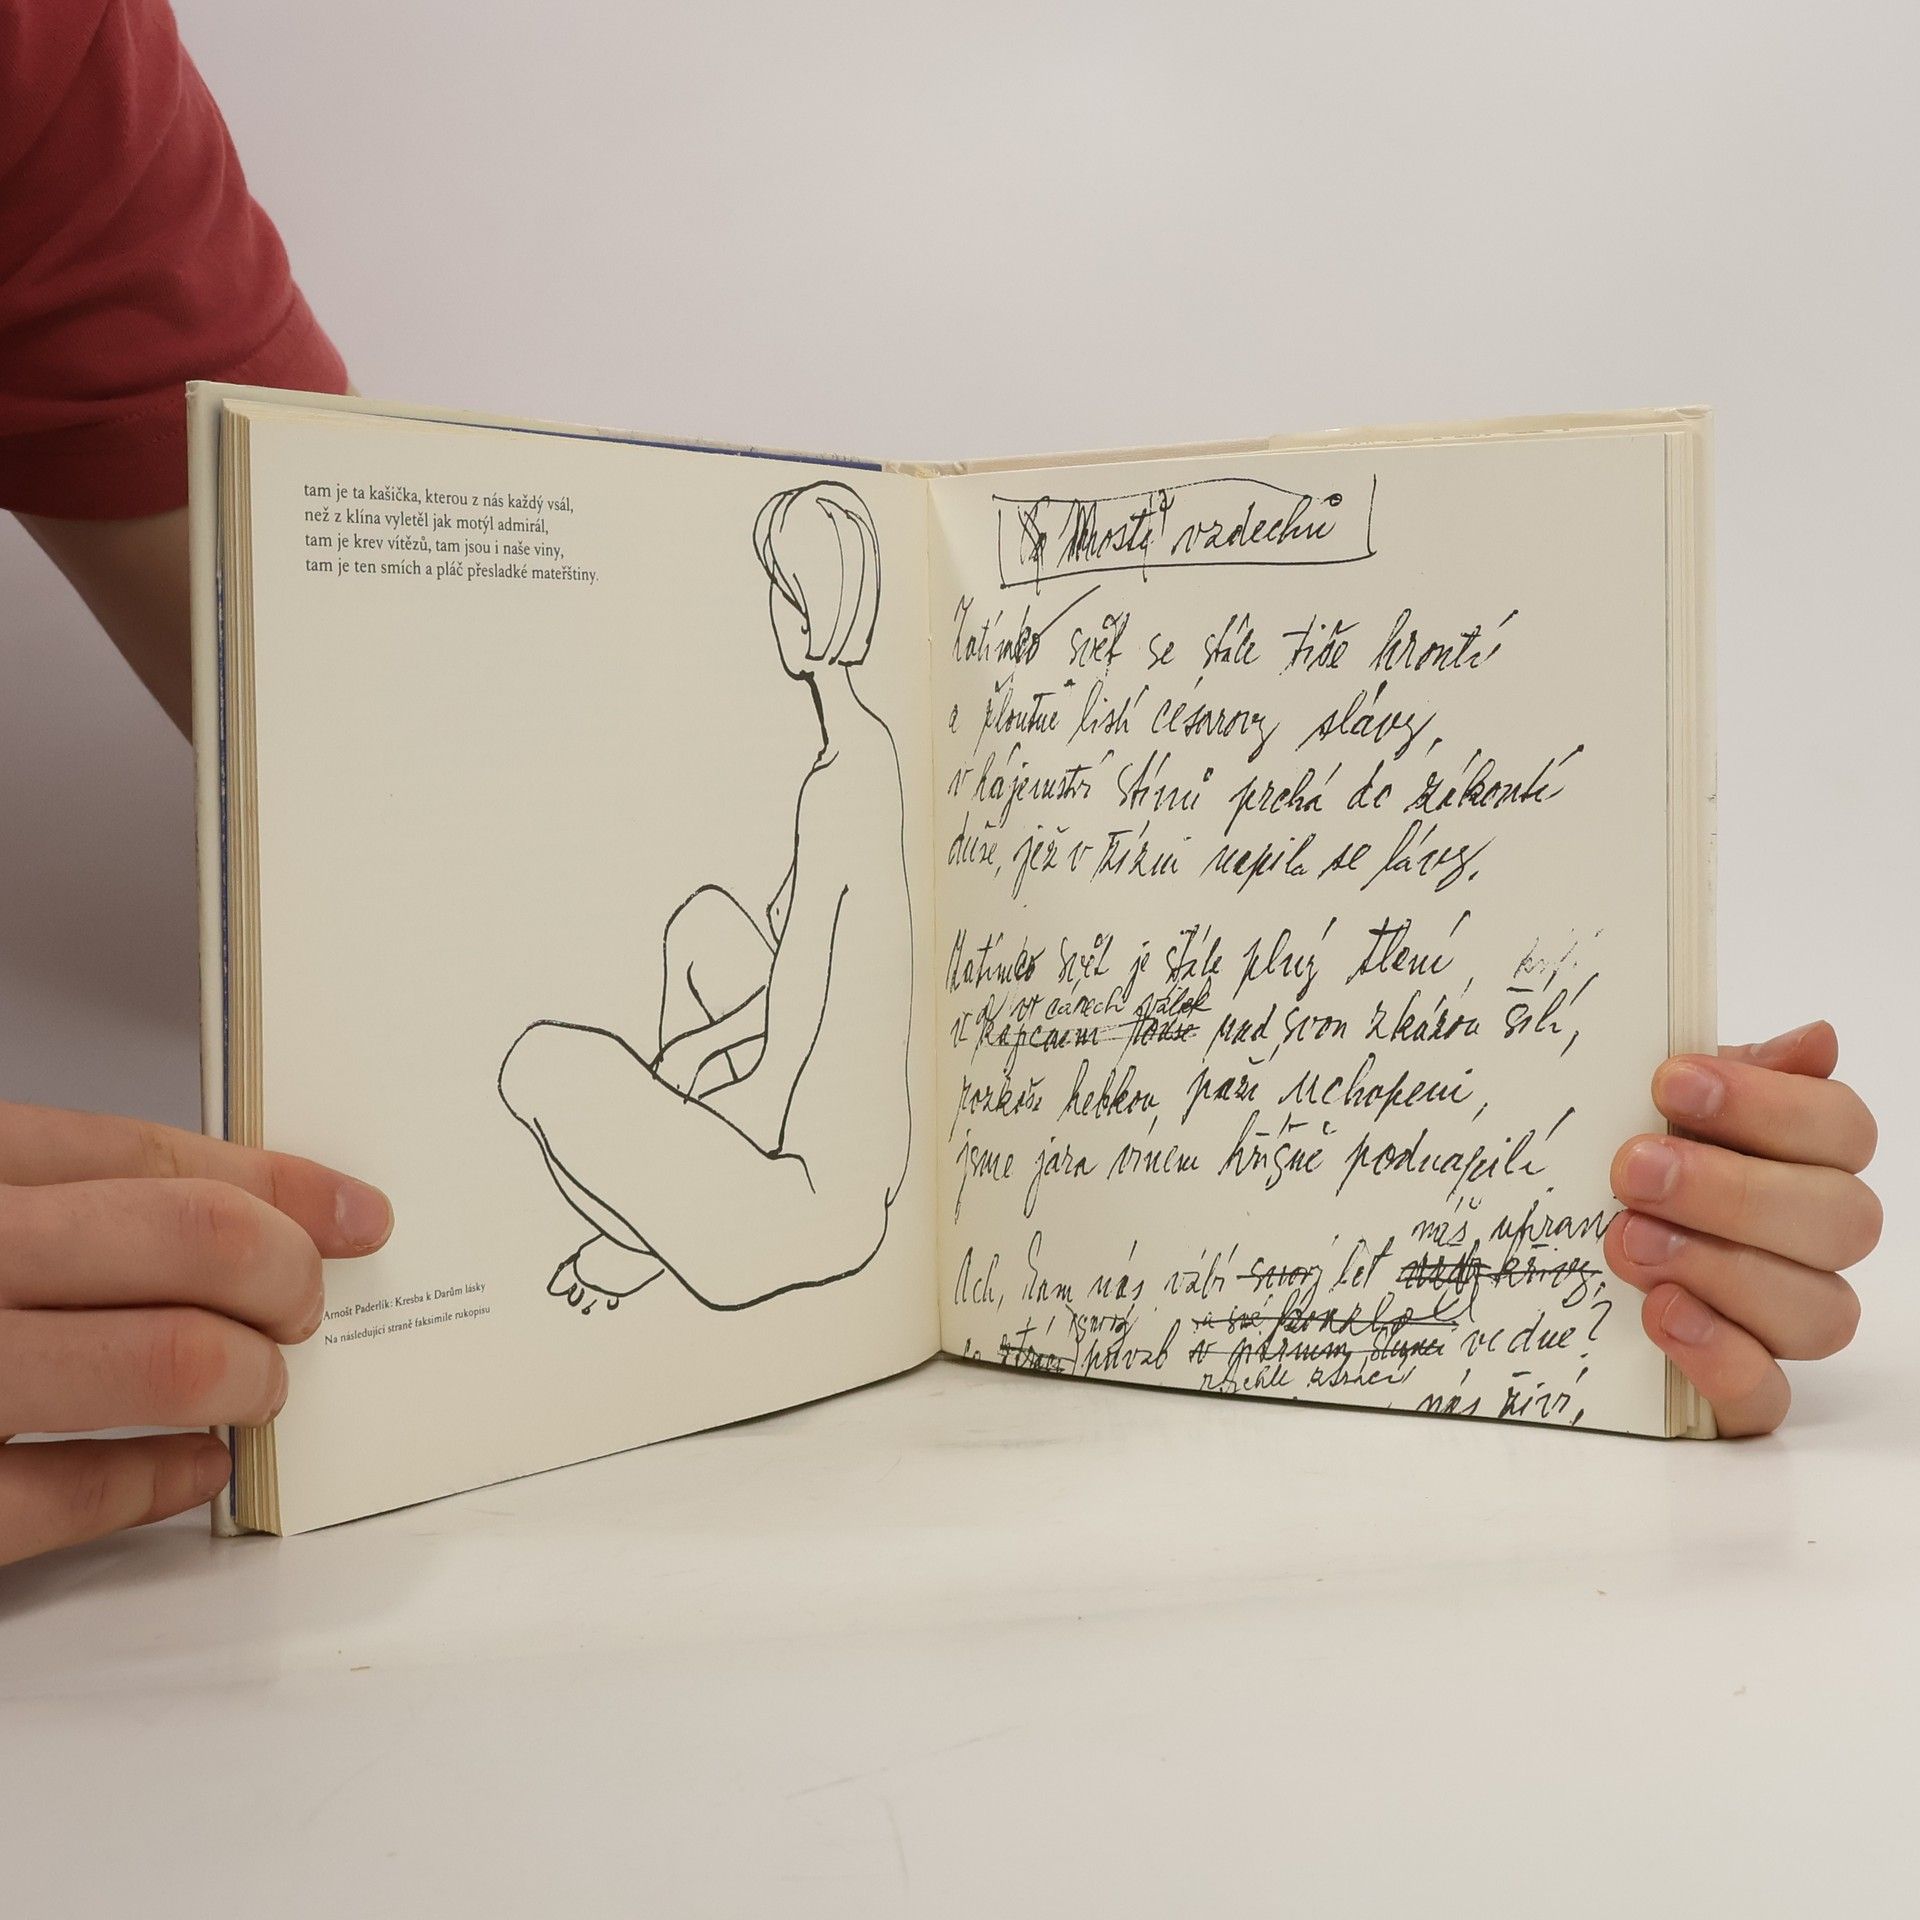 tam je ta kašička, kterou z nás každý vsál,
než z klína vyletěl jak motýl admirál,
tam je krev vítězů, tam jsou i naše viny,
tam je ten smích a pláč přesladké mateřštiny.
Arnošt Paderlík: Kresba k Darům lásky
Na následující straně faksimile rukopisu
vzdechů
Zatímco svět se stále tiše hroutí
a žloutne listí césarovy slávy,
v hájemství stínů prchá do zákoutí
duše, jež v žízni napila se lávy.
Zatímco svět je stále plný tlení,
válek
v nad svou zkázou šílí,
rozkoší hebkou paží uchopeni,
jsme jara vínem hříšně podnapilí
náš
Ach, kam nás vábí let
svůj
půvab ve dne?
ztrácí
nás živí,